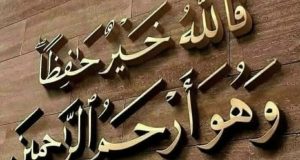 فَاللَّهُ خَيْرٌ حَٰفِظًا
وَهُوَ أَرْحَمُ الرَّٰحِمِينَ